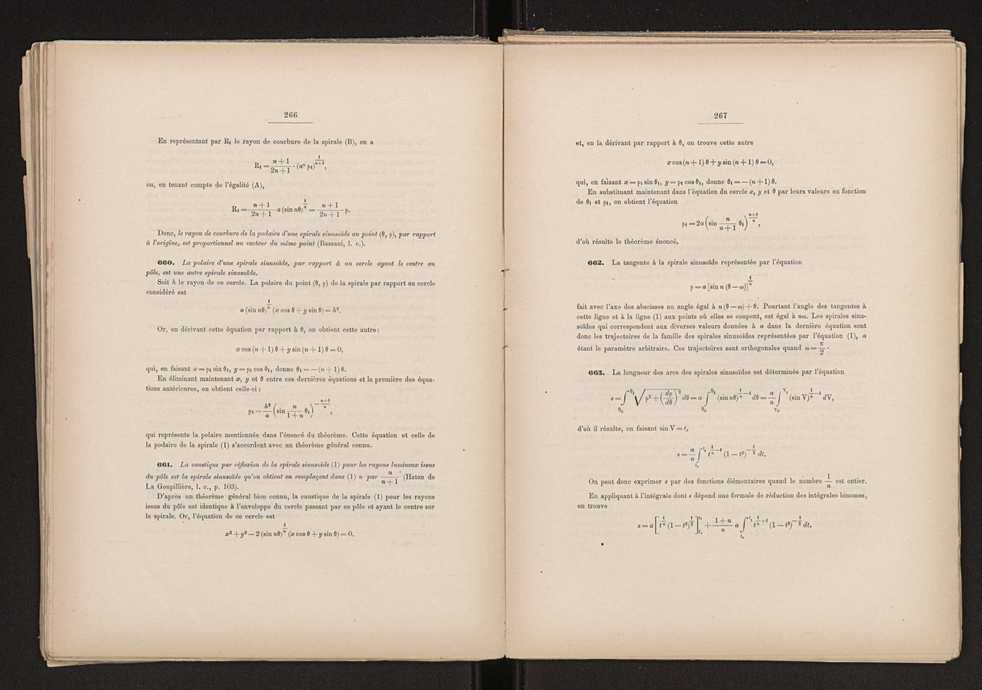 266
En représentant par R₁ le rayon de courbure de la spirale (B), on a
R₁ = (n + 1)/(2n + 1) · (aⁿ ρ₁)^(1/(n+1)),
ou, en tenant compte de l'égalité (A),
R₁ = (n + 1)/(2n + 1) · a (sin nθ)^(1/n) = (n + 1)/(2n + 1) ρ.
Donc, le rayon de courbure de la podaire d'une spirale sinusoïde au point (θ, ρ), par rapport
à l'origine, est proportionnel au vecteur du même point (Bassani, l. c.).
660. La polaire d'une spirale sinusoïde, par rapport à un cercle ayant le centre au
pôle, est une autre spirale sinusoïde.
Soit h le rayon de ce cercle. La polaire du point (θ, ρ) de la spirale par rapport au cercle
considéré est
a (sin nθ)^(1/n) (x cos θ + y sin θ) = h².
Or, en dérivant cette équation par rapport à θ, on obtient cette autre:
x cos (n + 1) θ + y sin (n + 1) θ = 0,
qui, en faisant x = ρ₁ sin θ₁, y = ρ₁ cos θ₁, donne θ₁ = — (n + 1) θ.
En éliminant maintenant x, y et θ entre ces dernières équations et la première des équa-
tions antérieures, on obtient celle-ci:
ρ₁ = h²/a (sin n/(1 + n) θ₁)^(—(n+1)/n),
qui représente la polaire mentionnée dans l'énoncé du théorème. Cette équation et celle de
la podaire de la spirale (1) s'accordent avec un théorème général connu.
661. La caustique par réflexion de la spirale sinusoïde (1) pour les rayons lumineux issus
du pôle est la spirale sinusoïde qu'on obtient en remplaçant dans (1) n par n/(n + 1) (Haton de
La Goupillière, l. c., p. 103).
D'après un théorème général bien connu, la caustique de la spirale (1) pour les rayons
issus du pôle est identique à l'enveloppe du cercle passant par ce pôle et ayant le centre sur
la spirale. Or, l'équation de ce cercle est
x² + y² — 2 (sin nθ)^(1/n) (x cos θ + y sin θ) = 0,
267
et, en la dérivant par rapport à θ, on trouve cette autre
x cos (n + 1) θ + y sin (n + 1) θ = 0,
qui, en faisant x = ρ₁ sin θ₁, y = ρ₁ cos θ₁, donne θ₁ = — (n + 1) θ.
En substituant maintenant dans l'équation du cercle x, y et θ par leurs valeurs en fonction
de θ₁ et ρ₁, on obtient l'équation
ρ₁ = 2a (sin n/(n + 1) θ₁)^((n+1)/n),
d'où résulte le théorème énoncé.
662. La tangente à la spirale sinusoïde représentée par l'équation
ρ = a [sin n (θ — ω)]^(1/n)
fait avec l'axe des abscisses un angle égal à n (θ — ω) + θ. Pourtant l'angle des tangentes à
cette ligne et à la ligne (1) aux points où elles se coupent, est égal à nω. Les spirales sinu-
soïdes qui correspondent aux diverses valeurs données à a dans la dernière équation sont
donc les trajectoires de la famille des spirales sinusoïdes représentées par l'équation (1), a
étant le paramètre arbitraire. Ces trajectoires sont orthogonales quand ω = π/2 ·
663. La longueur des arcs des spirales sinusoïdes est déterminée par l'équation
s = ∫_θ₀^θ₁ √(ρ² + (dρ/dθ)²) dθ = a ∫_θ₀^θ₁ (sin nθ)^(1/n — 1) dθ = a/n ∫_V₀^V₁ (sin V)^(1/n — 1) dV,
d'où il résulte, en faisant sin V = t,
s = a/n ∫_t₀^t₁ t^(1/n — 1) (1 — t²)^(—1/2) dt.
On peut donc exprimer s par des fonctions élémentaires quand le nombre 1/n est entier.
En appliquant à l'intégrale dont s dépend une formule de réduction des intégrales binomes,
on trouve
s = a [t^(1/n) (1 — t²)^(1/2)]_t₀^t₁ + (1 + n)/n a ∫_t₀^t₁ t^(1/n + 1) (1 — t²)^(—1/2) dt,